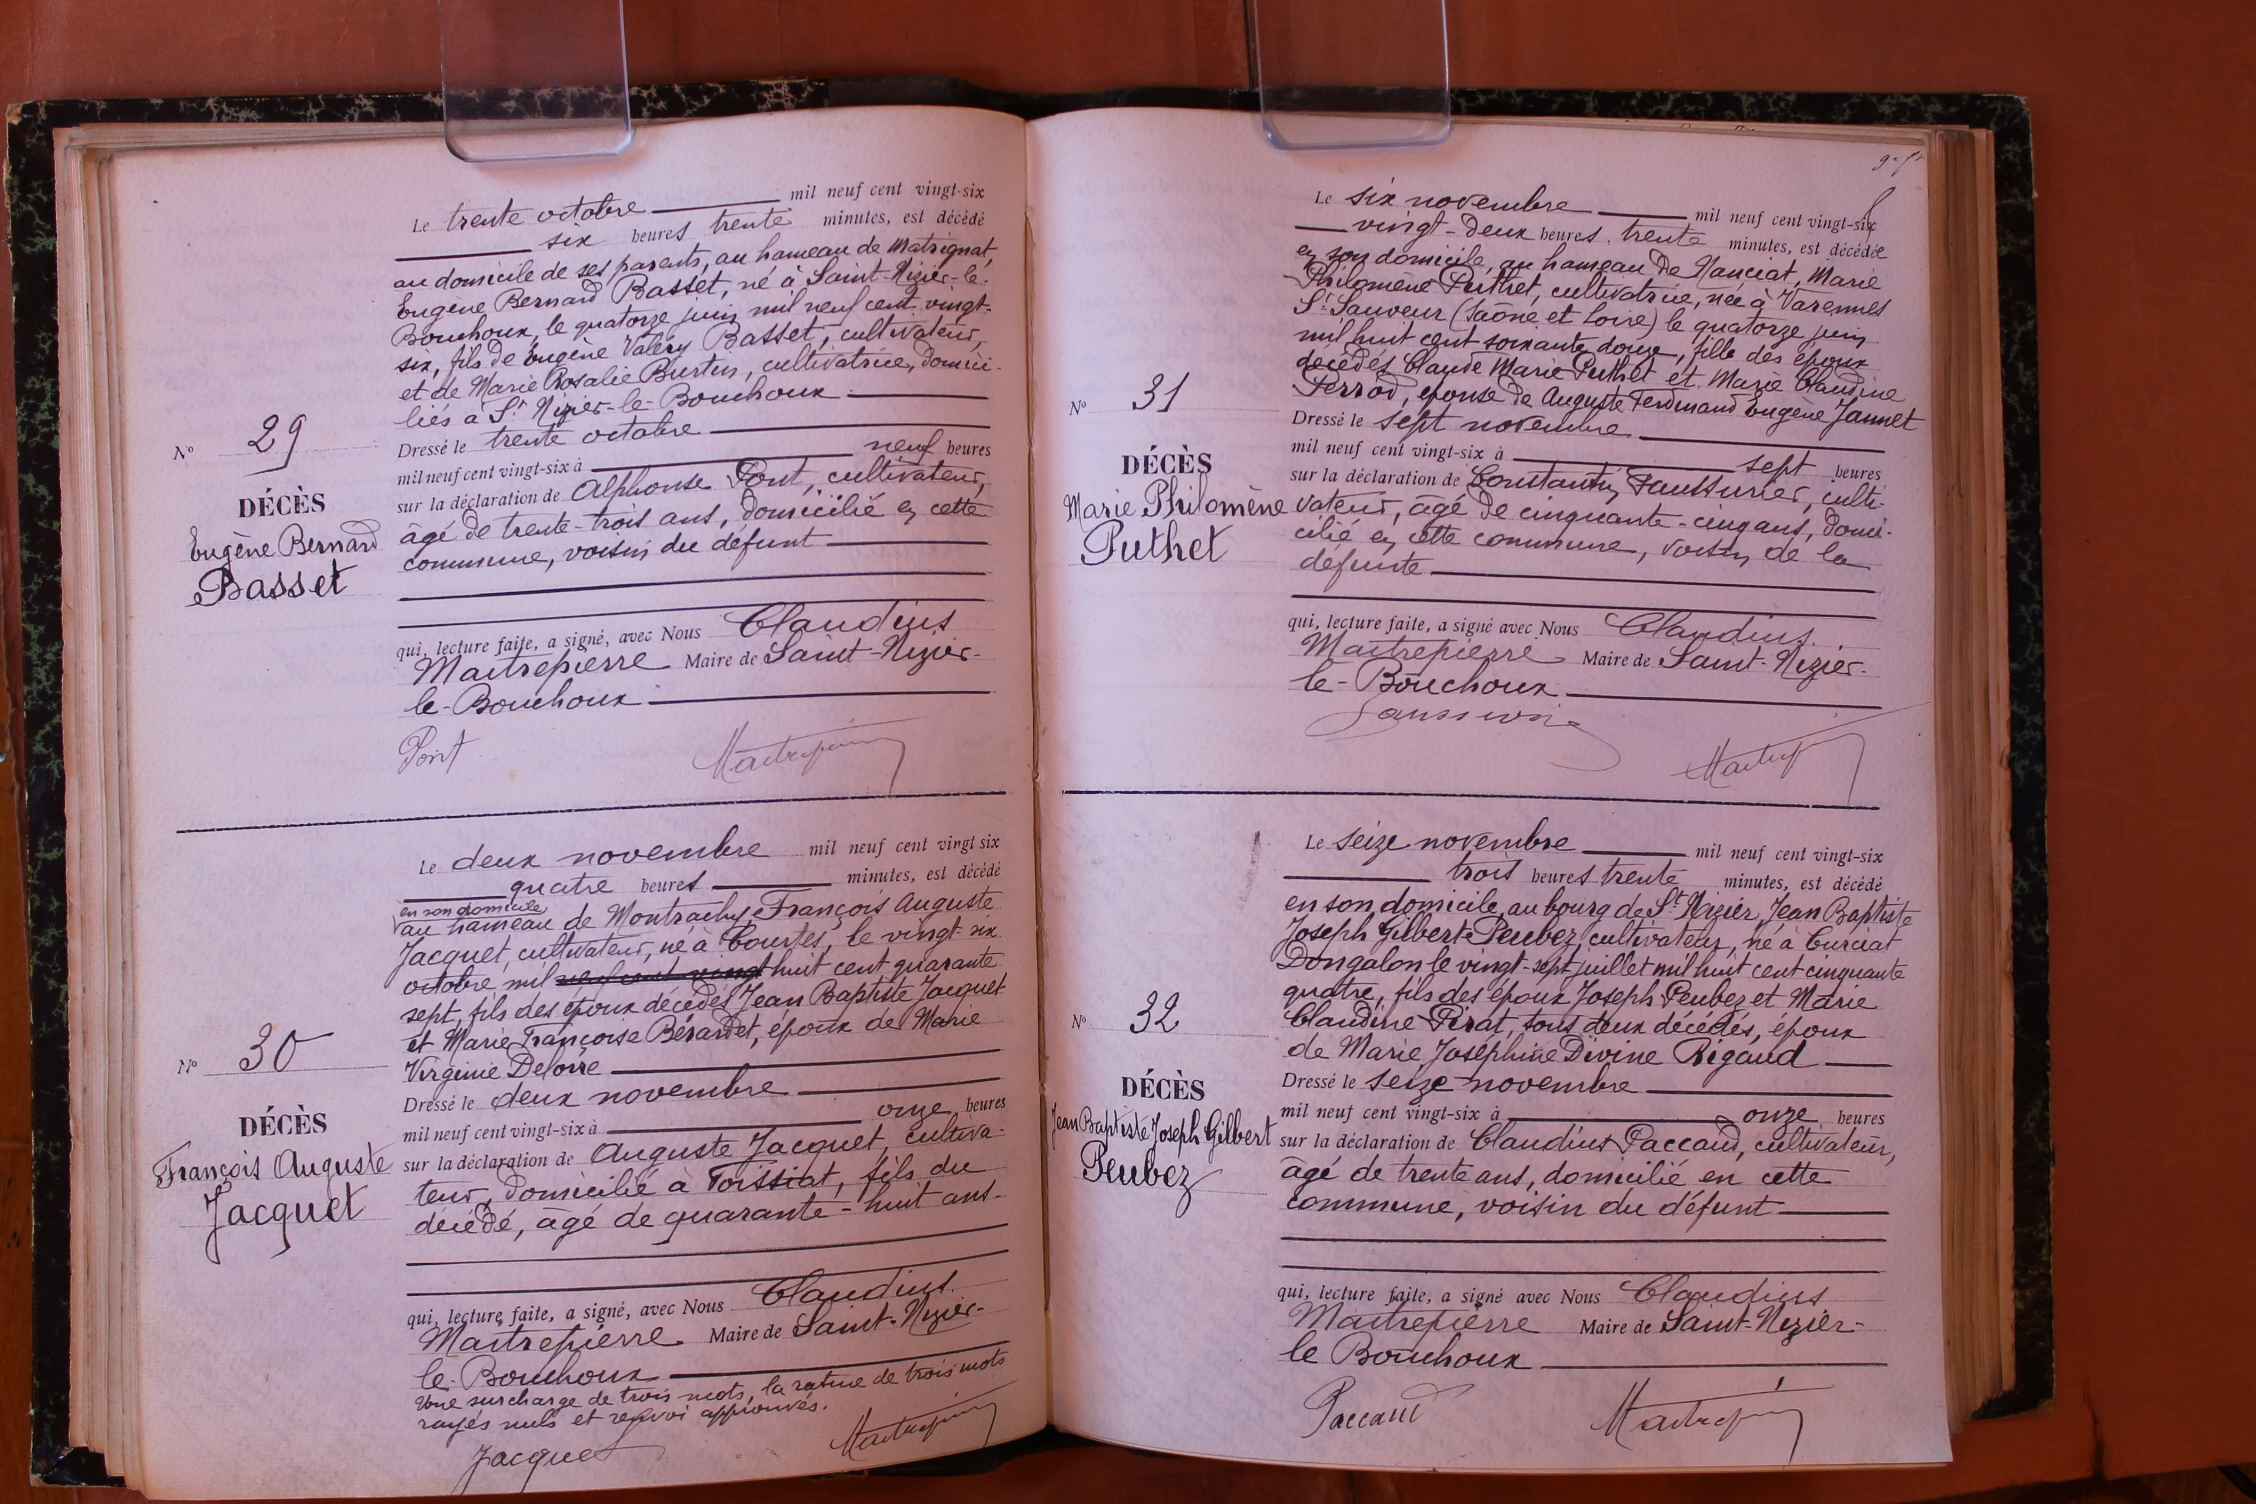 Le trente octobre mil neuf cent vingt-six
six heures trente minutes, est décédé
au domicile de ses parents, au hameau de Matrignat,
Eugène Bernard Basset, né à Saint-Nizier-le-
Bouchoux, le quatorze juin mil neuf cent vingt-
six, fils de Eugène Valéry Basset, cultivateur,
et de Marie Rosalie Burtin, cultivatrice, domici-
liés à St Nizier-le-Bouchoux
Dressé le trente octobre
mil neuf cent vingt-six à neuf heures
sur la déclaration de Alphonse Pont, cultivateur,
âgé de trente-trois ans, domicilié en cette
commune, voisin du défunt
qui, lecture faite, a signé, avec Nous Claudius
Maitrepierre Maire de Saint-Nizier-
le-Bouchoux
Pont Maitrepierre
No 29
DÉCÈS
Eugène Bernard
Basset
Le deux novembre mil neuf cent vingt six
quatre heures minutes, est décédé
en son domicile
au hameau de Montrachy, François Auguste
Jacquet, cultivateur, né à Courtes, le vingt-six
octobre mil neuf cent vingt huit cent quarante
sept, fils des époux décédés Jean Baptiste Jacquet
et Marie Françoise Bérardet, époux de Marie
Virginie Deloire
Dressé le deux novembre
mil neuf cent vingt-six à onze heures
sur la déclaration de Auguste Jacquet, cultiva-
teur, domicilié à Foissiat, fils du
décédé, âgé de quarante-huit ans-
qui, lecture faite, a signé, avec Nous Claudius
Maitrepierre Maire de Saint-Nizier-
le-Bouchoux
Une surcharge de trois mots, la rature de trois mots
rayés nuls et renvoi approuvés.
Jacquet Maitrepierre
No 30
DÉCÈS
François Auguste
Jacquet
Le six novembre mil neuf cent vingt-six
vingt-deux heures trente minutes, est décédée
en son domicile, au hameau de Nanciat, Marie
Philomène Puthet, cultivatrice, née à Varennes
St Sauveur (Saône et Loire) le quatorze juin
mil huit cent soixante douze, fille des époux
décédés Claude Marie Puthet et Marie Claudine
Ferrod, épouse de Auguste Ferdinand Eugène Jannet
Dressé le sept novembre
mil neuf cent vingt-six à sept heures
sur la déclaration de Constantin Faussurier, culti-
vateur, âgé de cinquante-cinq ans, domi-
cilié en cette commune, voisin de la
défunte
qui, lecture faite, a signé avec Nous Claudius
Maitrepierre Maire de Saint-Nizier-
le-Bouchoux
Maitrepierre
No 31
DÉCÈS
Marie Philomène
Puthet
Le seize novembre mil neuf cent vingt-six
trois heures trente minutes, est décédé
en son domicile, au bourg de St Nizier, Jean Baptiste
Joseph Gilbert Peubez, cultivateur, né à Curciat
Dongalon le vingt-sept juillet mil huit cent cinquante
quatre, fils des époux Joseph Peubez et Marie
Claudine Pirat, tous deux décédés, époux
de Marie Joséphine Divine Rigaud
Dressé le seize novembre
mil neuf cent vingt-six à onze heures
sur la déclaration de Claudius Paccaud, cultivateur,
âgé de trente ans, domicilié en cette
commune, voisin du défunt
qui, lecture faite, a signé avec Nous Claudius
Maitrepierre Maire de Saint-Nizier-
le Bouchoux
Paccaud Maitrepierre
No 32
DÉCÈS
Jean Baptiste Joseph Gilbert
Peubez